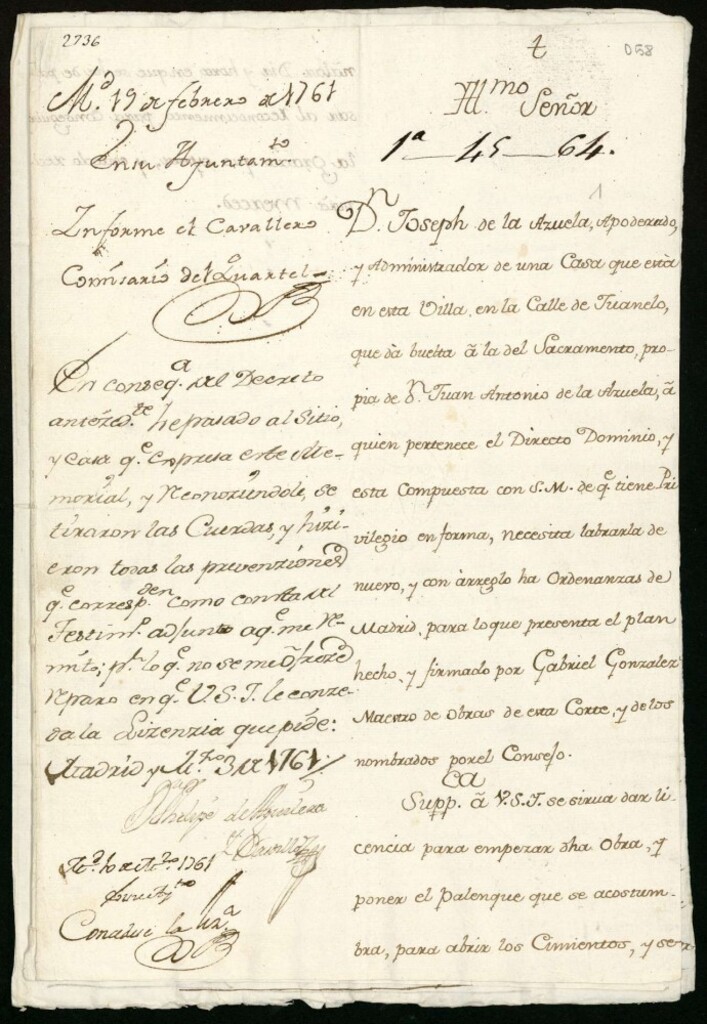 2736
058
M.d 19 de febrero de 1761
En su Ayuntam.to
Informe el Cavallero
Comisario del Quartel
En conseq.a del Decreto
anteced.te he pasado al Sitio,
y Casa q.e expresa este Me-
morial, y reconoziendole, se
tiraron las Cuerdas, y hizi-
eron todas las prevenziones
q.e corresp.den como consta del
Testim.o adjunto a q.e me re-
mito; p.r lo q.e no se me ofreze
reparo en q.e V.S.I. le conze-
da la Lizenzia que pide:
Madrid y M.zo 3 de 1761
D.n Phelipe de Aguilera
1761
t
Ill.mo Señor
1.a 45 64.
1
D.n Joseph de la Azuela, Apoderado,
y Administrador de una Casa que està
en esta Villa, en la Calle de Juanelo,
que dà buelta â la del Sacramento, pro-
pia de D.n Juan Antonio de la Azuela, â
quien pertenece el Directo Dominio, y
esta Compuesta con S.M. de q.e tiene Pri
vilegio en forma, necesita labrarla de
nuevo, y con àrreglo ha Ordenanzas de
Madrid, para lo que presenta el plan
hecho, y firmado por Gabriel Gonzalez
Maestro de Obras de esta Corte, y de los
nombrados por el Consejo.
Supp.ca â V.S.I. se sirva dar li-
cencia para empezar dha Obra, y
poner el Palenque que se acostum-
bra, para abrir los Cimientos, y ser-